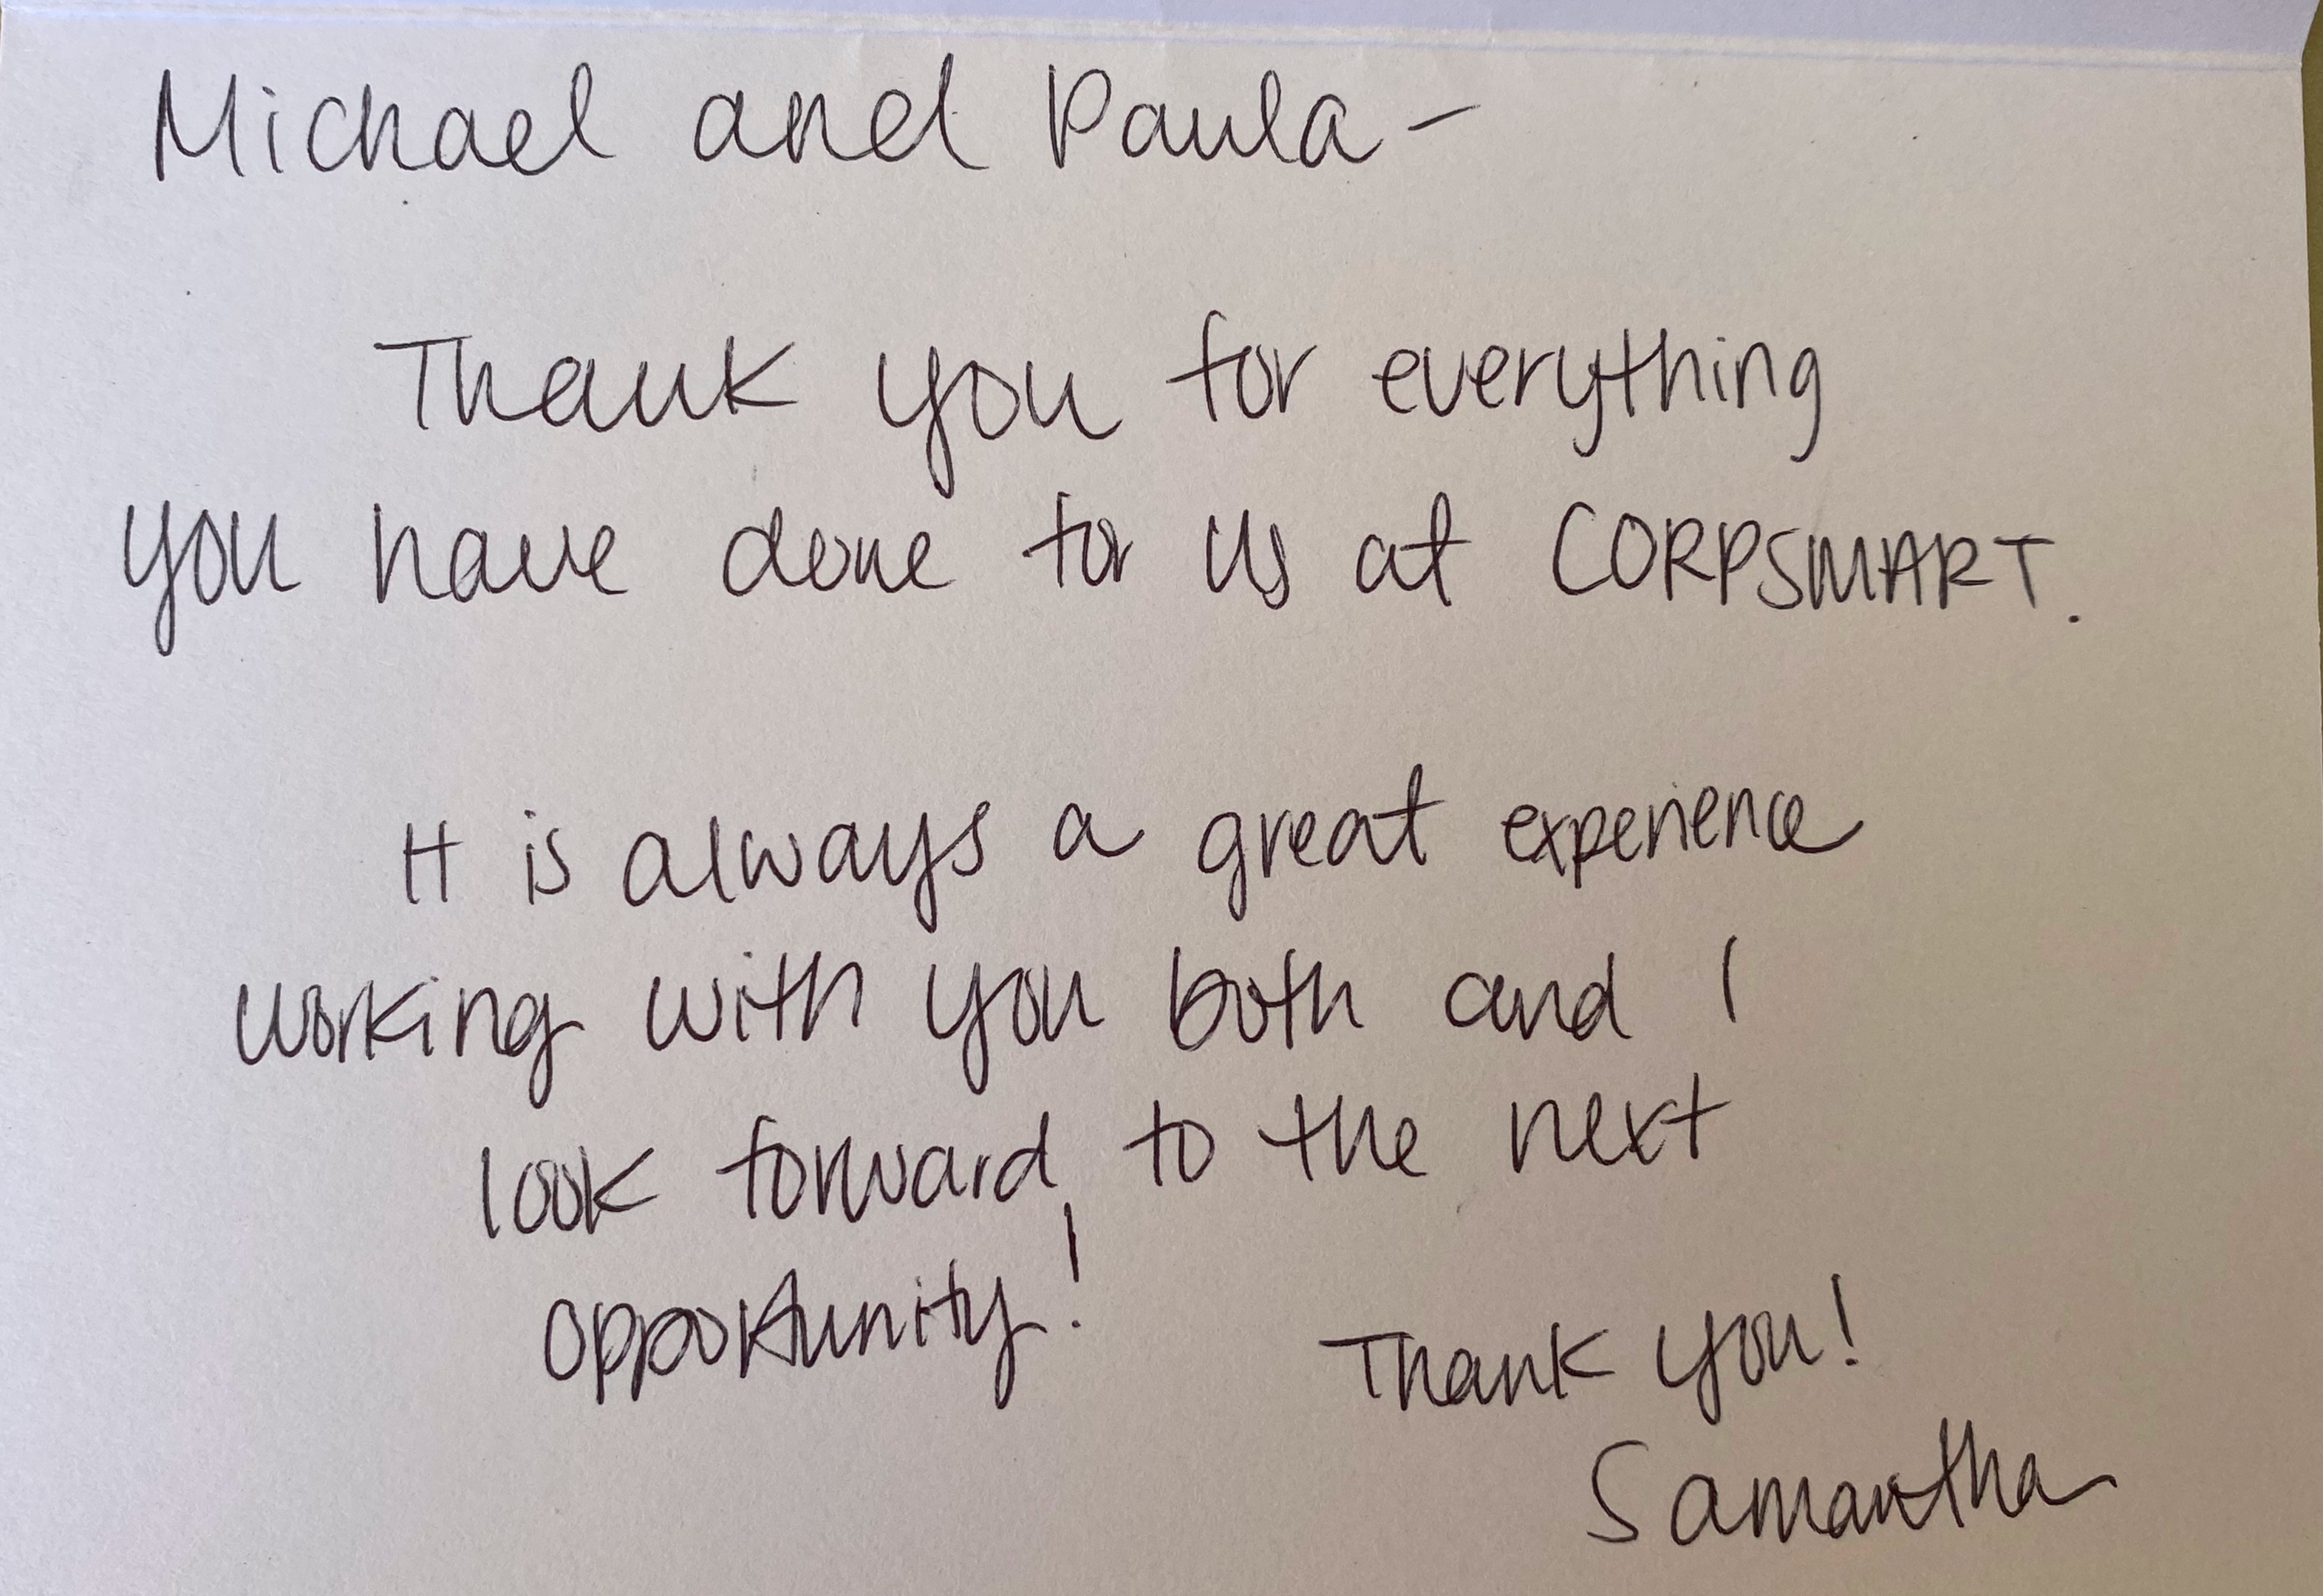 Michael and Paula-
Thank you for everything
you have done for us at CORPSMART.
It is always a great experience
working with you both and I
look forward to the next
opportunity!
Thank you!
Samantha